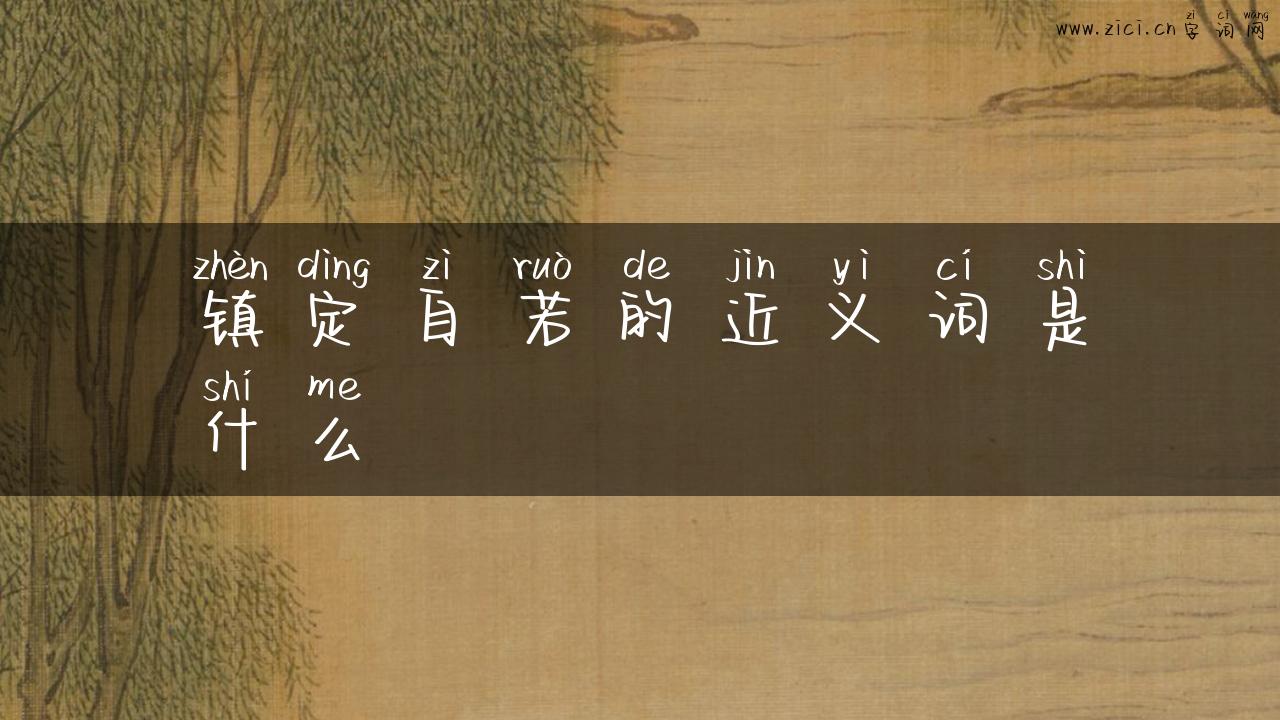 zì cí wǎng
www.zici.cn 字词网
zhèn dìng zì ruò de jìn yì cí shì
镇定自若的近义词是
shí me
什么